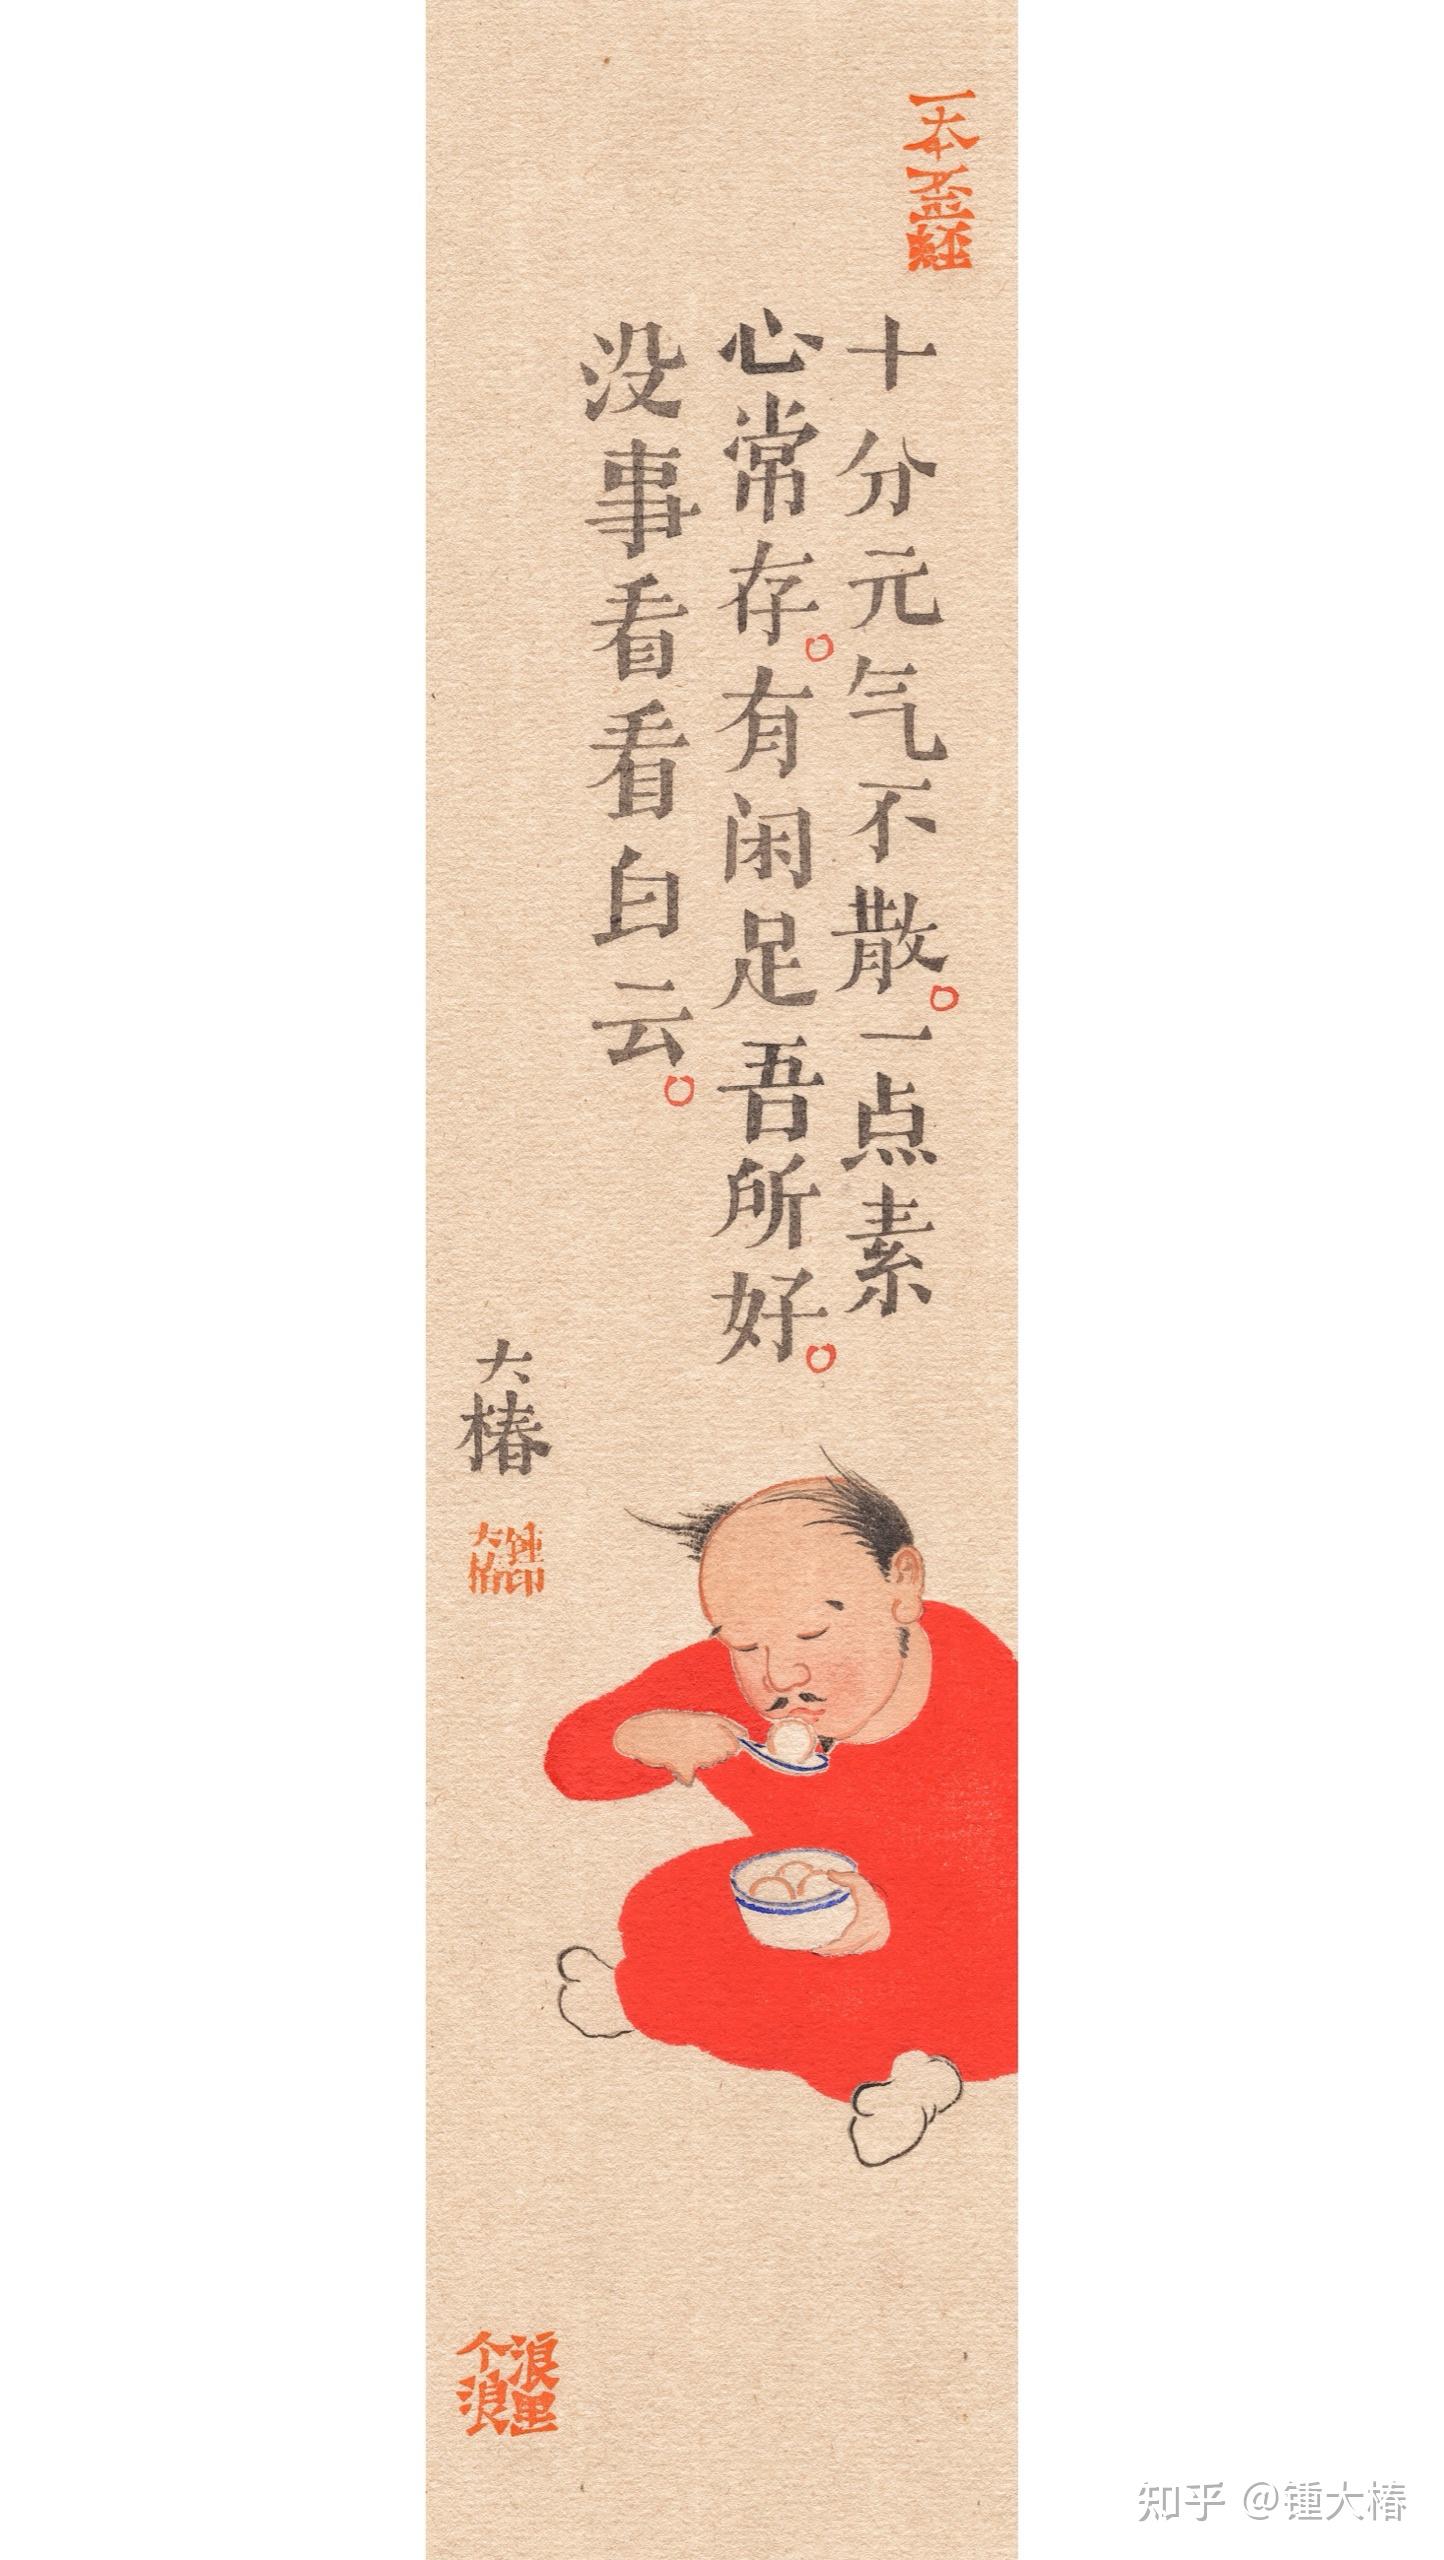 一本正经
十分元气不散。一点素
心常存。有闲足吾所好。
没事看看白云。
大椿
浪里
个浪
知乎 @锺大椿